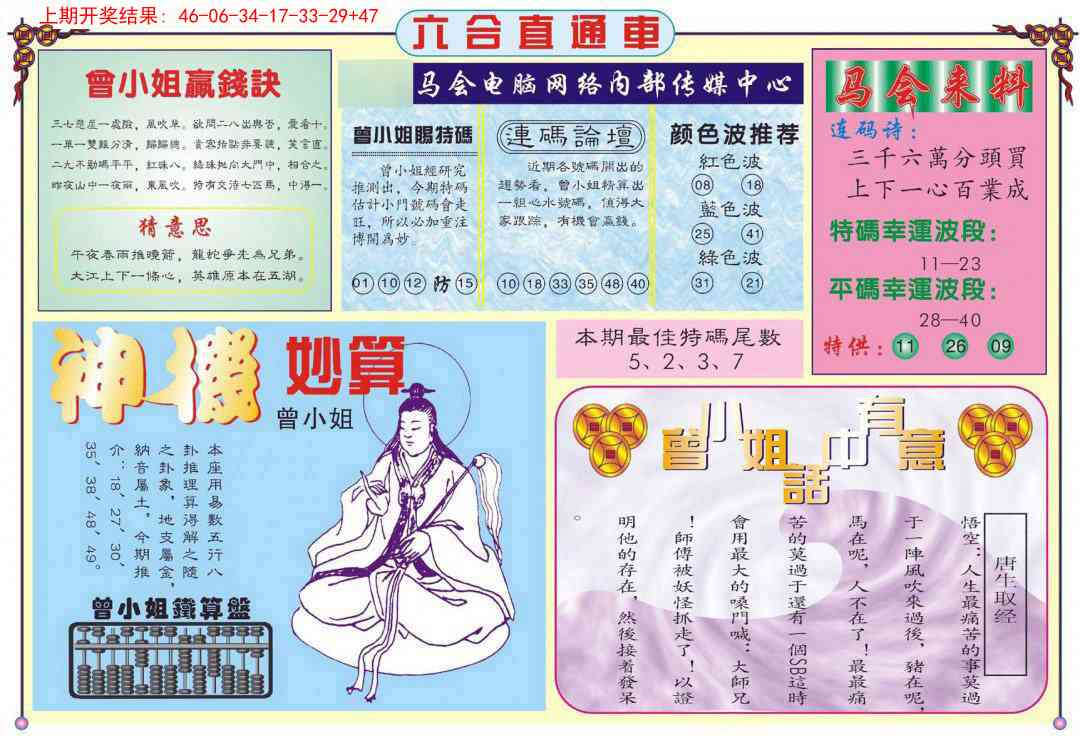 上期开奖结果: 46-06-34-17-33-29+47
六合直通車
曾小姐贏錢訣
二九不動碼平平，紅妹八。綠妹批向大門中，相合之。
昨夜山中一夜雨，東風吹。特有交待七匹馬，中得一。
猜意思
午夜春雨推曉箭，龍蛇爭先為兄弟。
大江上下一條心，英雄原本在五湖。
马会电脑网络内部传媒中心
曾小姐賜特碼
曾小姐經研究
推測出，今期特碼
估計小門號碼會走
旺，所以必加重注
博開為妙。
01 10 12 防 15
連碼論壇
近期各號碼開出的
趨勢看，曾小姐精算出
一組心水號碼，值得大
家跟踪，有機會贏錢。
10 18 33 35 48 40
颜色波推荐
紅色波
08 18
藍色波
25 41
綠色波
31 21
马会来料
连码诗：
三千六萬分頭買
上下一心百業成
特碼幸運波段：
11—23
平碼幸運波段：
28—40
特供：11 26 09
本期最佳特碼尾數
5、2、3、7
神機妙算
曾小姐
本座用易數五行八
卦推理算得解之隨
之卦象，地支屬金，
納音屬土，今期推
介：18、27、30、
35、38、48、49。
曾小姐鐵算盤
曾小姐有話中意
唐生取经
悟空：人生最痛苦的事莫過
于一陣風吹來過後，豬在呢，
馬在呢，人不在了！最最痛
苦的莫過于還有一個SB這時
會用最大的嗓門喊：大師兄
！師傅被妖怪抓走了！以證
明他的存在，然後接着發呆
。